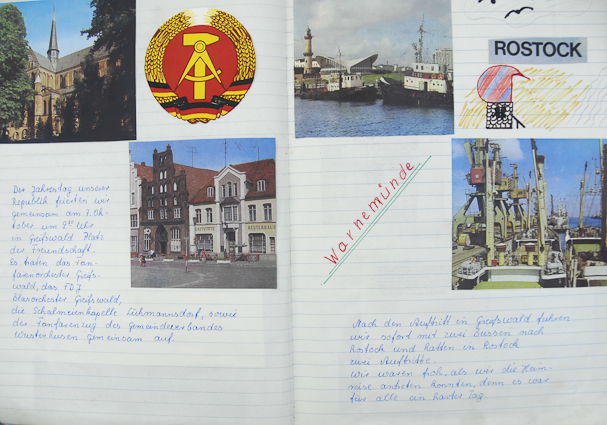 Der Jahrestag unserer
Republik feierten wir
gemeinsam am 7. Ok-
tober um 9³⁰ Uhr
in Greifswald Platz
der Freundschaft.
Es traten das Fan-
farenorchester Greifs-
wald, das FDJ
Blasorchester Greifswald,
die Schalmeienkapelle Lühmannsdorf, sowie
der Fanfarenzug des Gemeindeverbandes
Wusterhusen gemeinsam auf.
GASTSTÄTTE
REUTERHAUS
ROSTOCK
Warnemünde
Nach den Auftritt in Greifswald fuhren
wir sofort mit zwei Bussen nach
Rostock und hatten in Rostock
zwei Auftritte.
Wir waren froh, als wir die Heim-
reise antreten konnten, denn es war
für alle ein harter Tag.